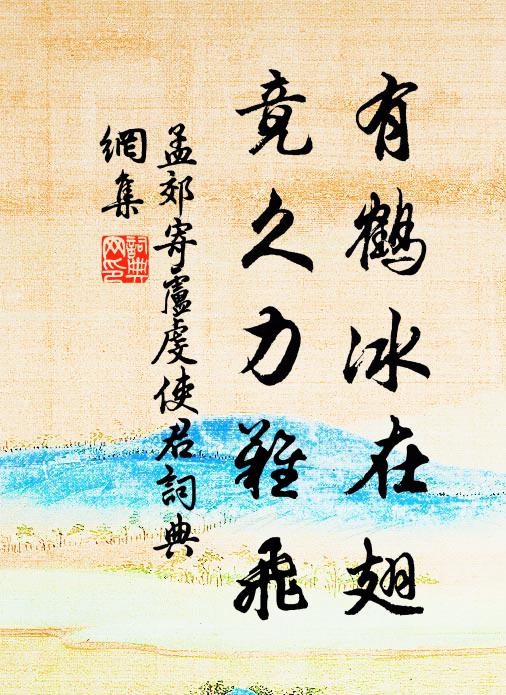 有鶴冰在翅
竟久力難飛
孟郊寄盧虔使君詞典
網集
詞典網印